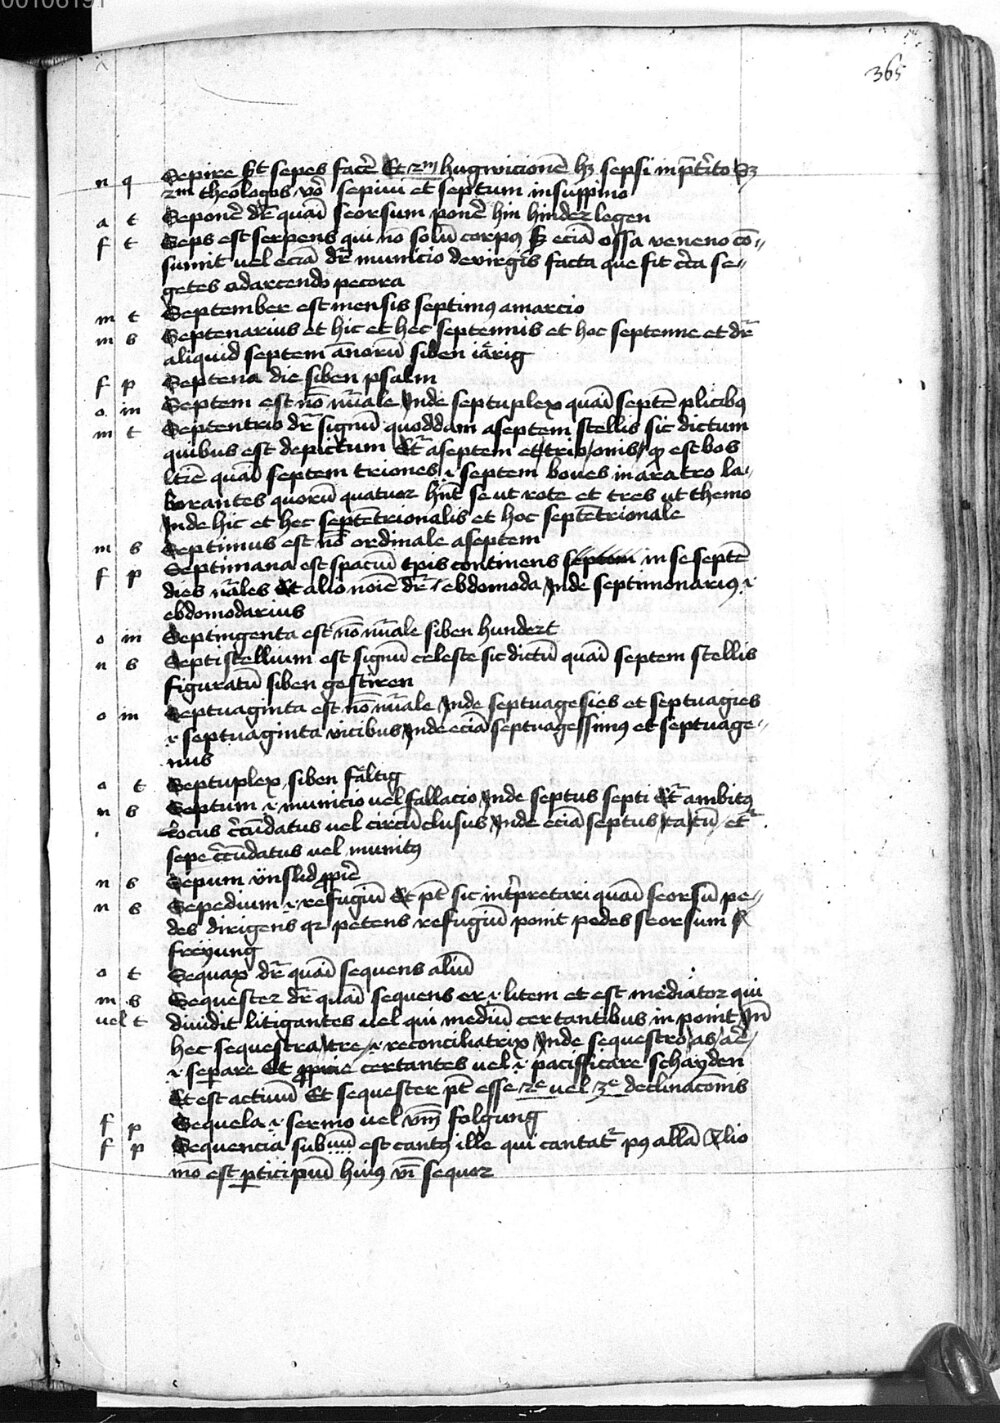 00106191
365
n q Sepire est sepes facē Et 2m hugwicionē hȝ sepsi in p̄t̄ito Sȝ
2m theologos v̊o sepiui et septum in suppino
a t Seponē dr̄ quasi seorsum ponē hin hinder legen
f t Seps est serpens qui nō solū corpꝰ sȝ eciā ossa veneno cō-
sumit vel eciā dr̄ municio de virgis facta que fit c̄ca se-
getes ad arcendo pecora
m t September est mensis septimꝰ a marcio
m s Septenarius et hic et hec septennis et hoc septenne et dr̄
aliquid septem ānorū siben iärig
f p Septena die siben psalm
o in Septem est nō nūale Inde septuplex quasi septē plicibꝰ
m t Septentrio dr̄ signū quoddam a septem stellis sic dictum
quibus est depictum Et dr̄ a septem et trio onis qȝ est bos
quasi septem triones .i. septem boues in aratro la-
borantes quorū quatuor hn̄t se ut rote et tres ut themo
Inde hic et hec septētrionalis et hoc septētrionale
m s Septimus est nō ordinale a septem
f p Septimana est spaciū tp̄is continens septem in se septē
dies nāles Et alio noīe dr̄ ebdomoda Inde septimonariꝰ .i.
ebdomodarius
o in Septingenta est nō nūale siben hundert
n s Septistellium est signū celeste sic dictū quasi septem stellis
figuratū siben gestiren
o in Septuaginta est nō nūale Inde septuagesies et septuagies
.i. septuaginta vicibus Inde eciā septuagessimꝰ et septuage-
nus
o t Septuplex siben fältig
n s Septum .i. municio vel fallacio Inde septus septi Et dr̄ ambitꝰ
locus c̄cūdatus vel circūclusus Inde eciā septus ta tū et dr̄
sepe c̄cūdatus vel munitꝰ
n s Sepum vnslid ꝓpiē
n s Sepedium .i. refugiū Et pt̄ sic int̄pretari quasi seorsū pe-
des dirigens qꝛ petens refugiū ponit pedes seorsum
freyung
o t Sequax dr̄ quasi sequens aliū
m s Sequester dr̄ quasi sequens er .i. litem et est mediator qui
vel t diuidit litigantes vel qui mediū certantibus in ponit In̄
hec sequestra tre .i. reconciliatrix Inde sequestro as aē
.i. separe Et ꝓprie certantes vel .i. pacifficare schayden
Et est actiuū Et sequester pt̄ esse 2e vel 3e declinacōnis
f p Sequela .i. sermo vel folgung
f p Sequencia sub est cantꝰ ille qui cantat̄ pꝰ allā Alio
mō est pticipiū huiꝰ vī sequor